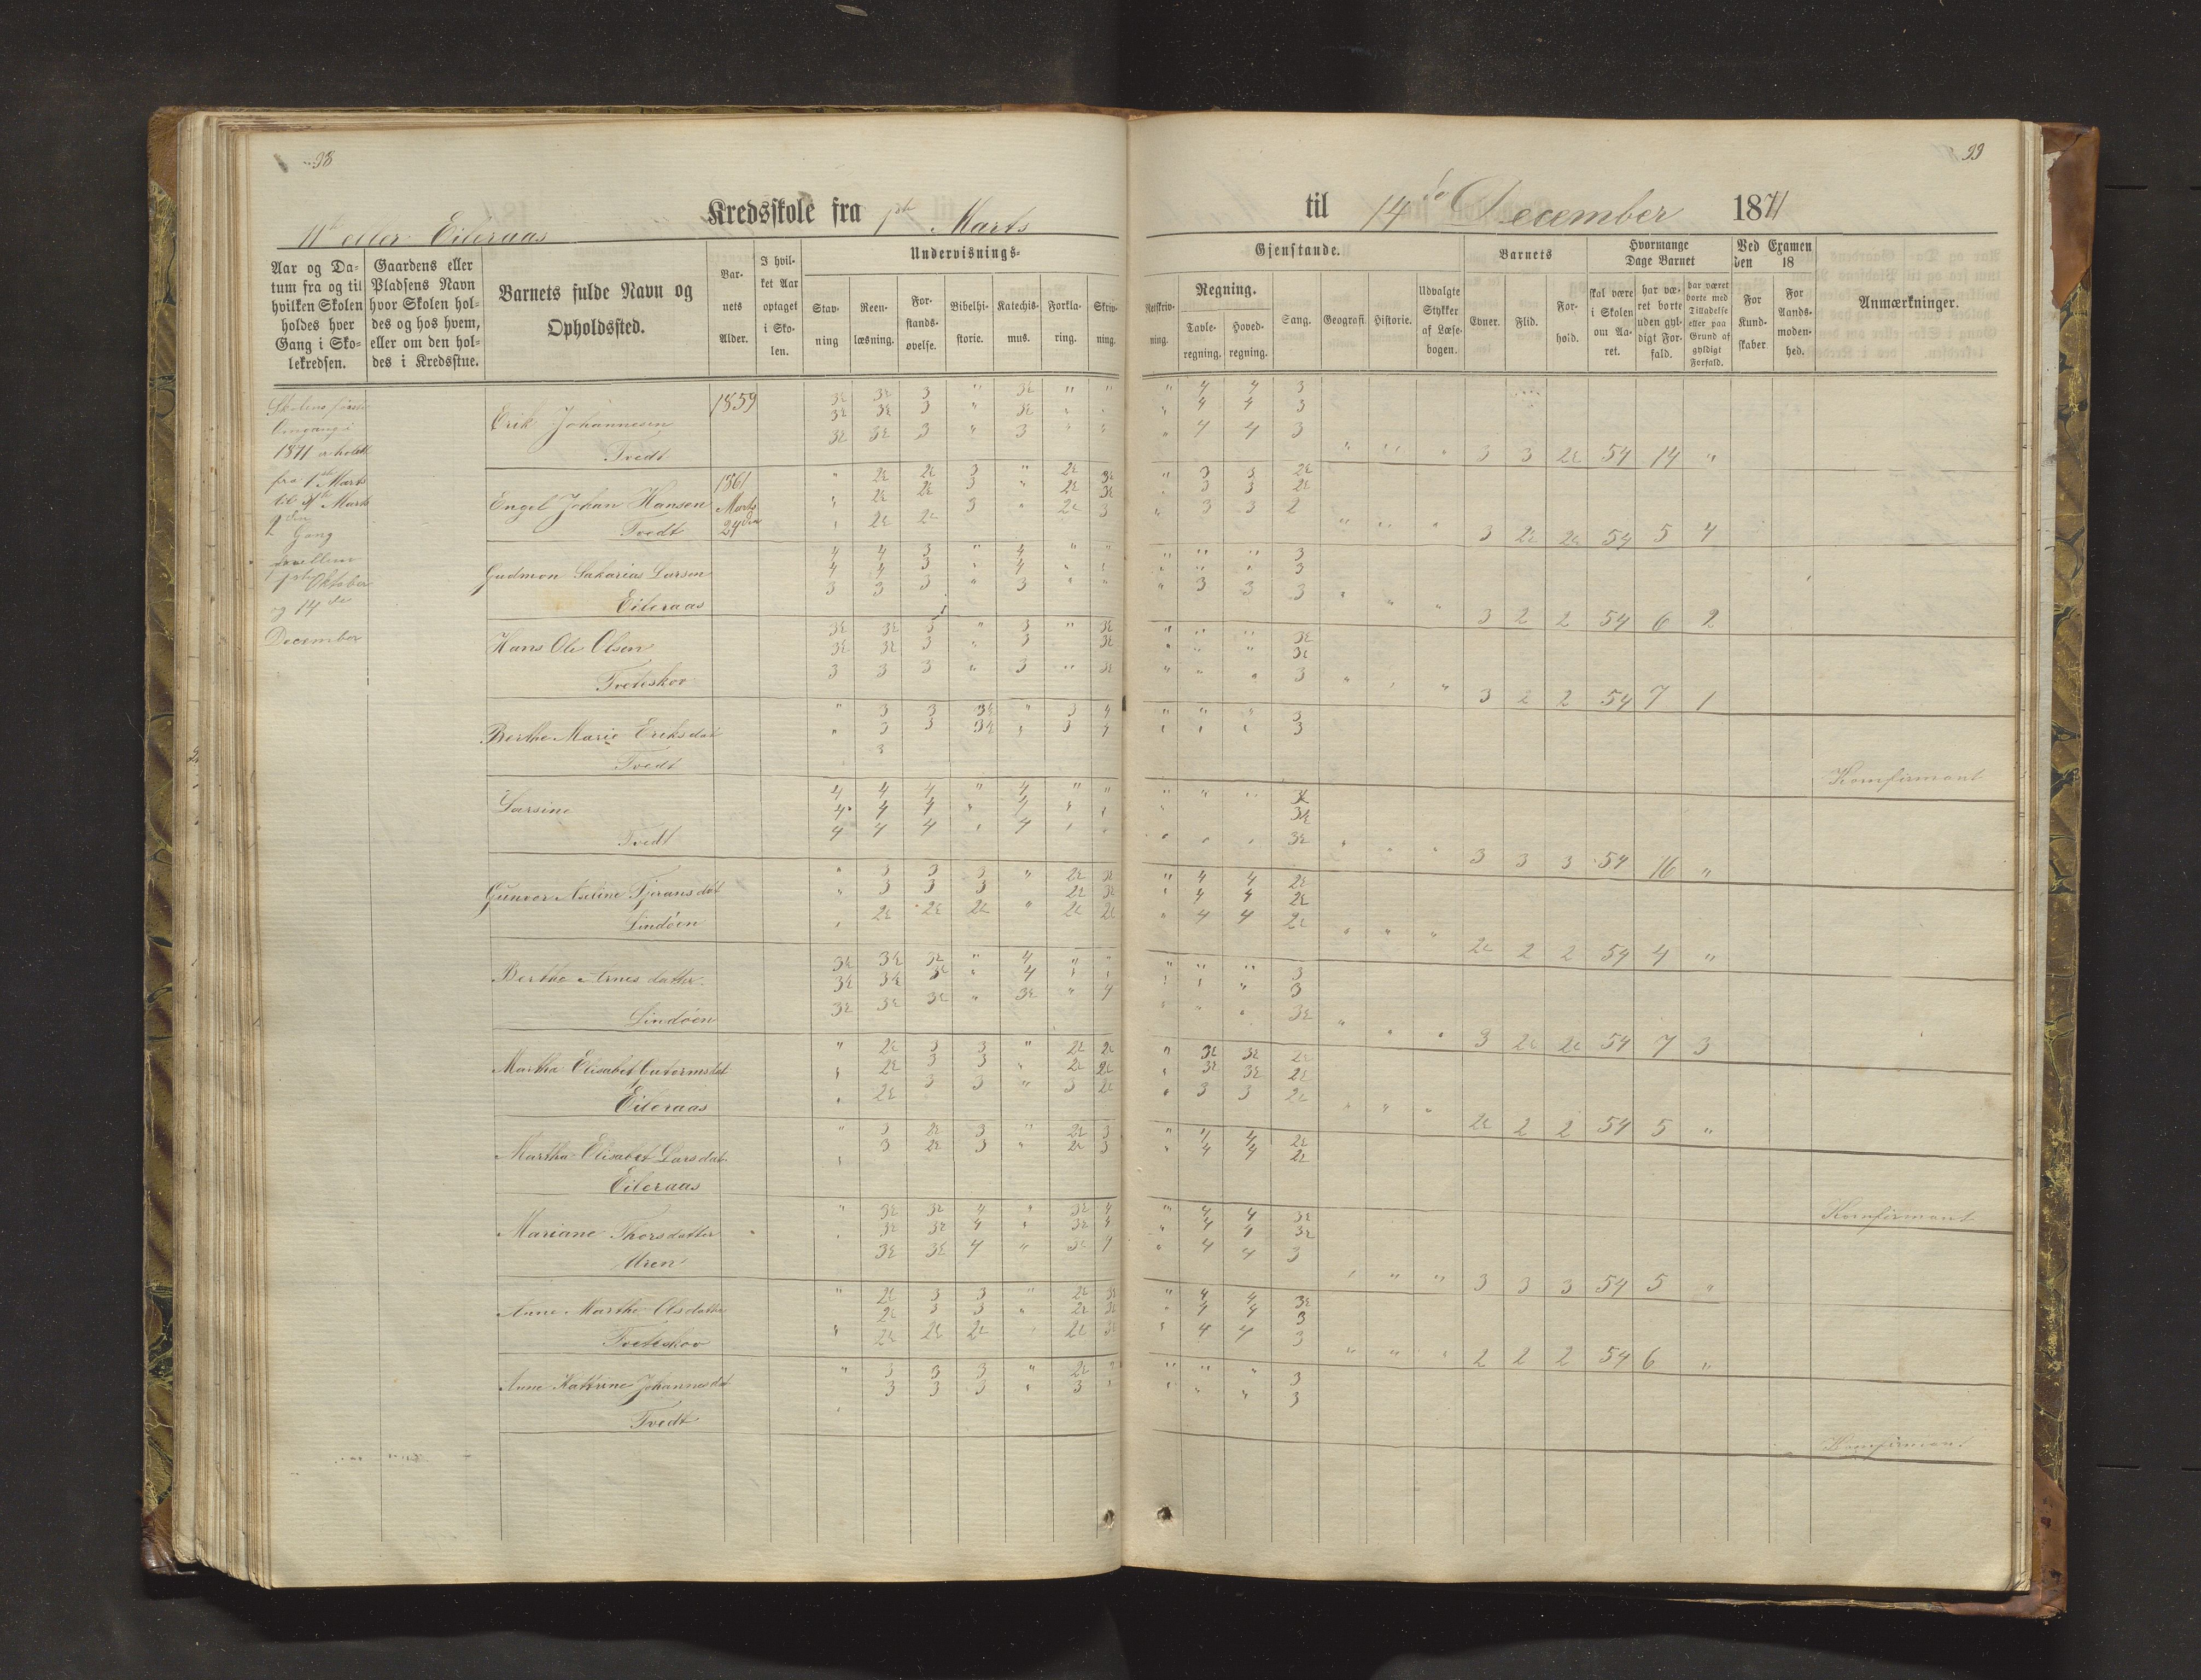 98
11te eller Eileraas Kredsskole fra 1ste Marts
Undervisnings-
Aar og Datum fra og til hvilken Skolen holdes hver Gang i Skolekredsen.
Gaardens eller Pladsens Navn hvor Skolen holdes og hos hvem, eller om den holdes i Kredsstue.
Barnets fulde Navn og Opholdssted.
Barnets Alder.
I hvilket Aar optaget i Skolen.
Stavning
Reenlæsning.
Forstandsøvelse.
Bibelhistorie.
Katechismus.
Forklaring.
Skrivning.
Skolens første
Omgang i
1871 er holdt
fra 1ste Marts
til Marts
2den Gang
imellem
1ste Oktober
og 14de
December
Erik Johannesen 1859 3½ 3½ 3 " 3½ " "
3½ 3½ 3 " 3½ " "
Tvedt 3½ 3½ 3 " 3 " "
Engel Johan Hansen 1861 " 2½ 2½ 3 " 2½ 3½
Marts " 2½ 2½ 3 " 2½ 3½
Tvedt 24den " 2½ 2½ 3 " 2½ 3
Gudmon Sakarias Larsen 4 4 3 " 4 " "
4 4 3 " 4 " "
Eileraas 3 3 3 " 3 " "
Hans Ole Olsen 3½ 3½ 3 " 3 " 3½
3½ 3½ 3 " 3 3½
Tveteskov 3 3 3 " 3 " 3½
Berthe Marie Eriksdat " 3 3 3½ " 3 4
" 3 3 3½ " 3 4
Tvedt 3
Larsine 4 4 4 " 4 " "
4 4 4 " 4 " "
Tvedt 4 4 4 " 4 " "
Gunvor Tjeransdat " 3 3 3 " 2½ 3½
" 3 3 3 2½ 3½
Lindøen " 2½ 2½ 2½ " 2½ 2½
Berthe Arnesdatter 3½ 3½ 3½ " 4 " "
3½ 3½ 3½ " 4 " "
Lindøen 3½ 3½ 3½ " 3½ " 4
Martha Elisabet Gutormsdat " 2½ 3 3 " 2½ 2½
" 2½ 3 3 " 2½ 2½
Eileraas " 2½ 3 3 " 3 2½
Martha Elisabet Larsdat " 3 2½ 3 " 2½ 3
" 3 2½ 3 " 2½ 3
Eileraas
Mariane Thorsdatter " 3½ 3½ 4 " 3½ 4
" 3½ 3½ 4 " 3½ 4
3½ 3½ 4 " 3½ 4
Anne Marthe Olsdatter " 2½ 3 3 " 2½ 3½
2½ 3 3 " 2½ 3½
Tveteskov " 2½ 2½ 2½ " 2½ 3½
Anne Kattrine Johannesdat " 3 3 3 " 2½
3 3 3 " 3 "
Tvedt
99
til 14de December 1871
Gjenstande.
Barnets
Hvormange Dage Barnet
Ved Examen den 18
Anmærkninger.
Retskrivning.
Regning.
Tavleregning.
Hovedregning.
Sang.
Geografi.
Historie.
Udvalgte Stykker af Læsebogen.
Evner.
Flid.
Forhold.
skal være i Skolen om Aaret.
har været borte uden gyldigt Forfald.
har været borte med Tilladelse eller paa Grund af gyldigt Forfald.
For Kundskaber
For Aandsmodenhed.
" 4 4 3
" 4 4 3
" 4 4 3
" " " 3 3 2½ 54 14 "
" 3 3 2½
" 3 3 2½
" 3 3 2
" " " 3 2½ 2½ 54 5 4
" " " 3
" " " 3
" 3 3 3
" " " 3 2 2 54 6 2
" " " 3½
" " " 3½
" " " 3
" " " 3 2 2 54 7 1
" " " 3
" " " 3
Komfirmant
" " " 3½
" 3½
" " " 3½
" " " 3 3 3 54 16 "
" 4 4 2½
" 4 4 2½
" 4 4 2½
" " " 2½ 2 2 54 4 "
" " " 3
" " " 3
" " " 3½
" " " 3 2½ 2½ 54 7 3
" 3½ 3½ 2½
" 3½ 3½ 2½
" 3 3 2½
" " " 2½ 2 2 54 5 "
" 4 4 2½
" 4 4 2½
Komfirmant
" 4 4 3½
" 4 4 3½
" 4 4 3
" " " 3 3 3 54 5 "
" 4 4 3½
" 4 4 3
" 4 4 3
" " " 2 2 2 54 6 "
" " " 3
" " " 3
Komfirmant